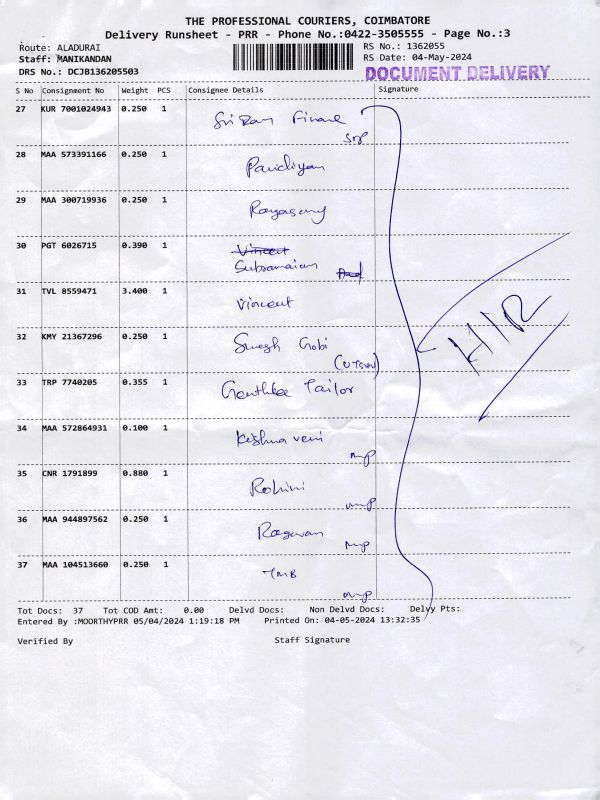 THE PROFESSIONAL COURIERS, COIMBATORE
Delivery Runsheet - PRR - Phone No.:0422-3505555 - Page No.:3
Route: ALADURAI RS No.: 1362055
Staff: MANIKANDAN RS Date: 04-May-2024
DRS No.: DCJB136205503 DOCUMENT DELIVERY
S No Consignment No Weight PCS Consignee Details Signature
27 KUR 7001024943 0.250 1 Sri Ram Finance
28 MAA 573391166 0.250 1 Pandiyan
29 MAA 300719936 0.250 1
30 PGT 6026715 0.390 1 Vincent
Subramaiam
31 TVL 8559471 3.400 1 Vincent
32 KMY 21367296 0.250 1 Suresh Gobi
33 TRP 7740205 0.355 1 Tailor
34 MAA 572864931 0.100 1 Krishna veni
mp
35 CNR 1791899 0.880 1 Rohini
mp
36 MAA 944897562 0.250 1 Ragavan
mp
37 MAA 104513660 0.250 1 TMB
mp
HIR
Tot Docs: 37 Tot COD Amt: 0.00 Delvd Docs: Non Delvd Docs: Delvy Pts:
Entered By :MOORTHYPRR 05/04/2024 1:19:18 PM Printed On: 04-05-2024 13:32:35
Verified By Staff Signature